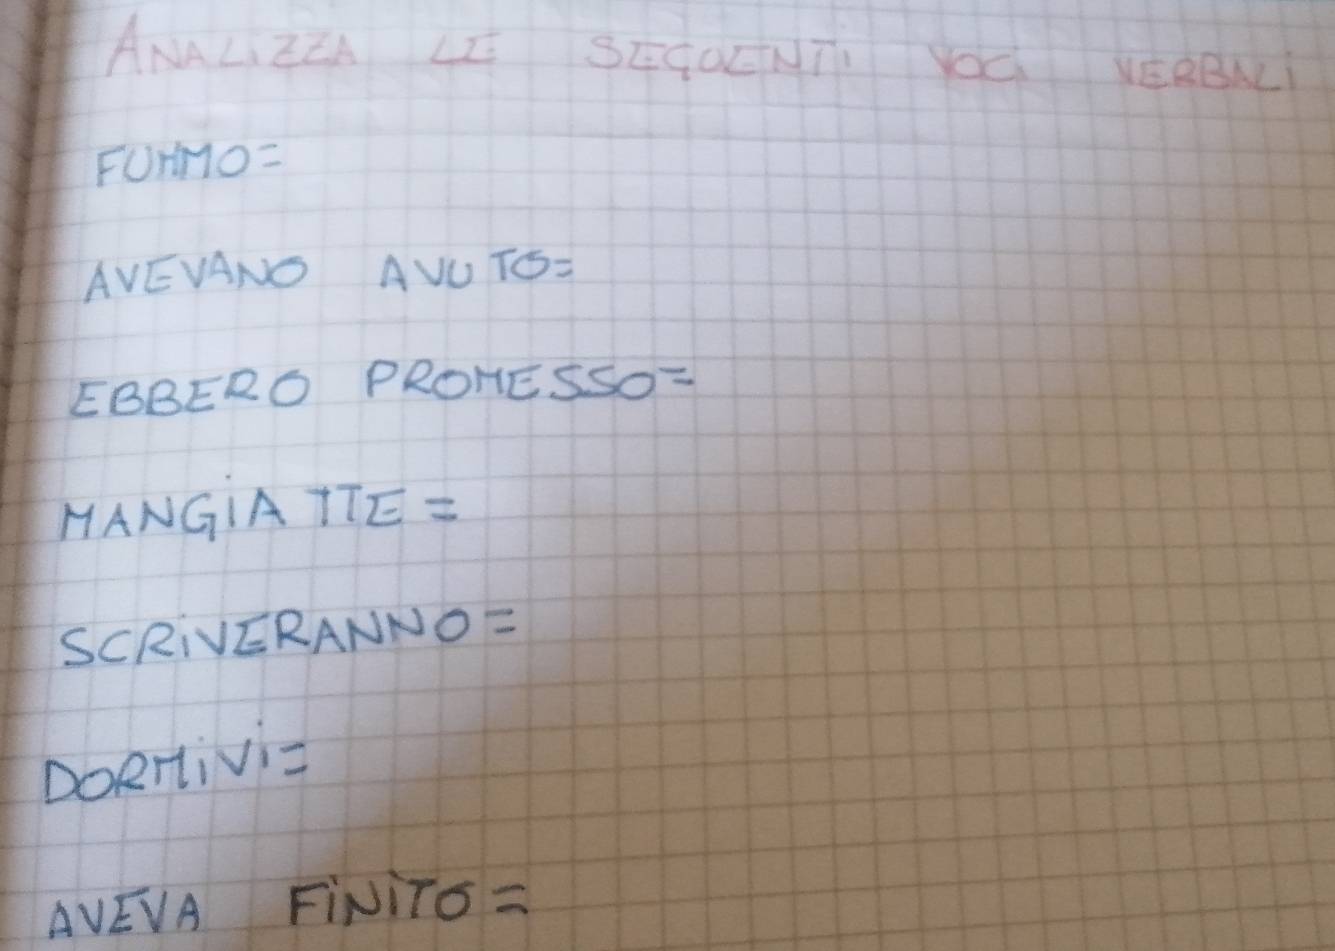 ANALIZZA LE SEGUENTI VOCI VERBALI
FUMMO=
AVEVANO AVUTO=
EBBERO PROMESSO=
MANGIATTE=
SCRIVERANNO=
DORMIVI=
AVEVA FINITO=